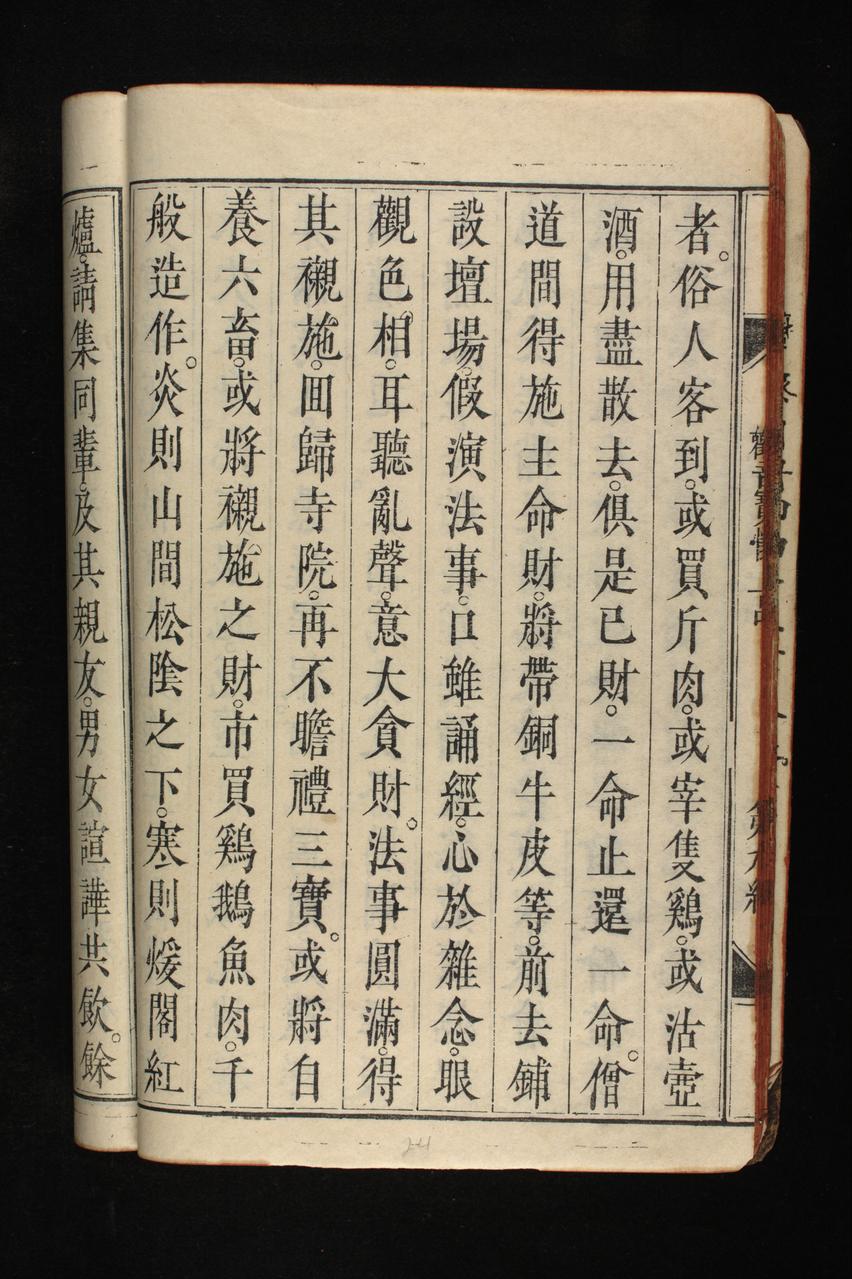 者。俗人客到。或買斤肉。或宰隻鷄。或沽壺
酒。用盡散去。俱是已財。一命止還一命。僧
道間得施主命財。將帶銅牛皮等。前去鋪
設壇場。假演法事。口雖誦經。心於雜念。眼
觀色相。耳聽亂聲。意大貪財。法事圓滿。得
其襯施。回歸寺院。再不瞻禮三寶。或將自
養六畜。或將襯施之財。市買鷄鵝魚肉。千
般造作。炎則山間松陰之下。寒則煖閣紅
爐。請集同輩。及其親友。男女諠譁共飲。餘